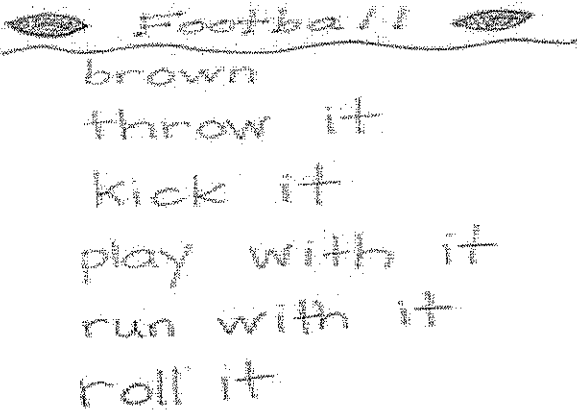 Football
brown
throw it
kick it
play with it
run with it
roll it